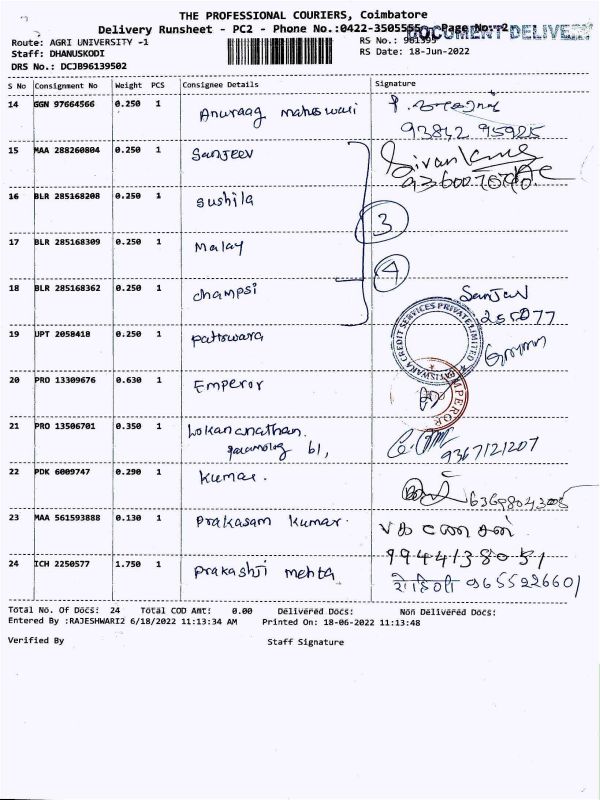 THE PROFESSIONAL COURIERS, Coimbatore
Delivery Runsheet - PC2 - Phone No.:0422-3505555 Page No.: 2
DOCUMENT DELIVERY
Route: AGRI UNIVERSITY -1
RS No.: 961395
Staff: DHANUSKODI
RS Date: 18-Jun-2022
DRS No.: DCJB96139502
S No Consignment No Weight PCS Consignee Details Signature
14 GGN 97664566 0.250 1 Anuraag maheswari
93842 95925
15 MAA 288260804 0.250 1 Sanjeev
16 BLR 285168208 0.250 1 Sushila
3
17 BLR 285168309 0.250 1 Malay
4
18 BLR 285168362 0.250 1 champsi
Sanjeev
19 UPT 2058418 0.250 1 pattswara
PATTISWARA CREDIT SERVICES PRIVATE LIMITED
20 PRO 13309676 0.630 1 Emperor
EMPEROR
21 PRO 13506701 0.350 1 Lokananathan.
61,
9367121207
22 PDK 6009747 0.290 1 Kumar.
23 MAA 561593888 0.130 1 Prakasam Kumar.
9944138051
24 ICH 2250577 1.750 1 Prakashji mehta
9655226601
Total No. Of Docs: 24 Total COD Amt: 0.00 Delivered Docs: Non Delivered Docs:
Entered By :RAJESHWARI2 6/18/2022 11:13:34 AM Printed On: 18-06-2022 11:13:48
Verified By Staff Signature